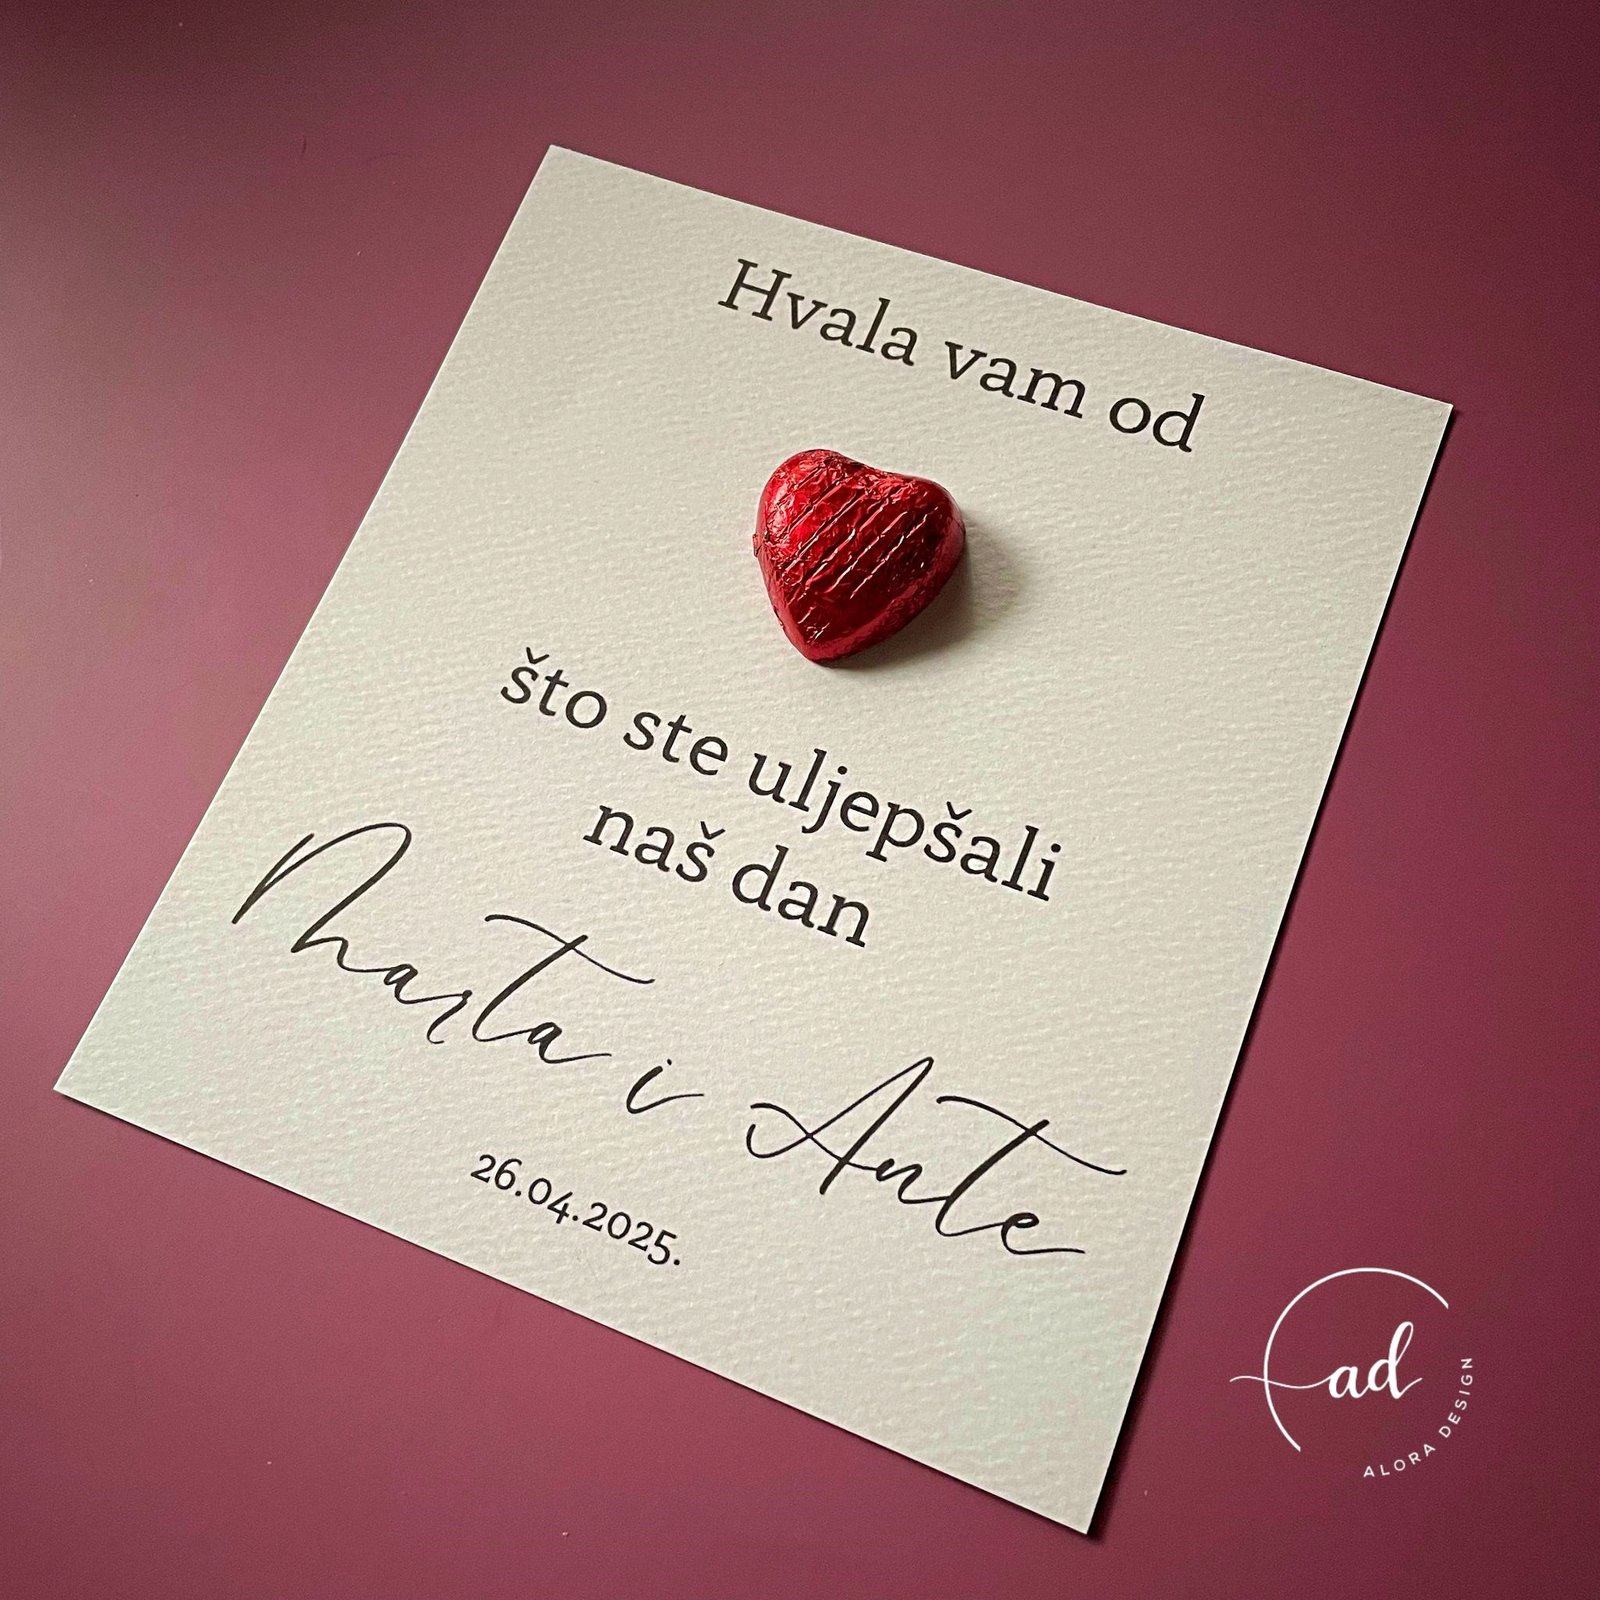 Hvala vam od
što ste uljepšali
naš dan
Marta i Ante
26.04.2025.
ad
ALORA DESIGN